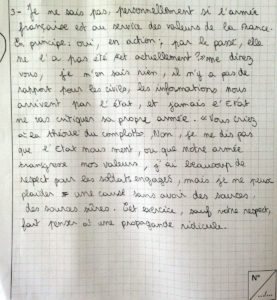 3- Je ne sais pas personnellement si l'armée
française est au service des valeurs de la France.
En principe, oui, en action; par le passé, elle
ne l'a pas été. Et actuellement? me direz
vous, je n'en sais rien, il n'y a pas de
rapport pour les civils, les informations nous
arrivent par l'état, et jamais l'Etat
ne va critiquer sa propre armée. "Vous criez
à la théorie du complot". Non, je ne dis pas
que l'Etat nous ment, ou que notre armée
transgresse nos valeurs, j'ai beaucoup de
respect pour les soldats engagés, mais je ne peux
plaider une cause sans avoir des sources,
des sources sûres. Cet exercice, sauf votre respect,
fait penser à une propagande ridicule.
N°